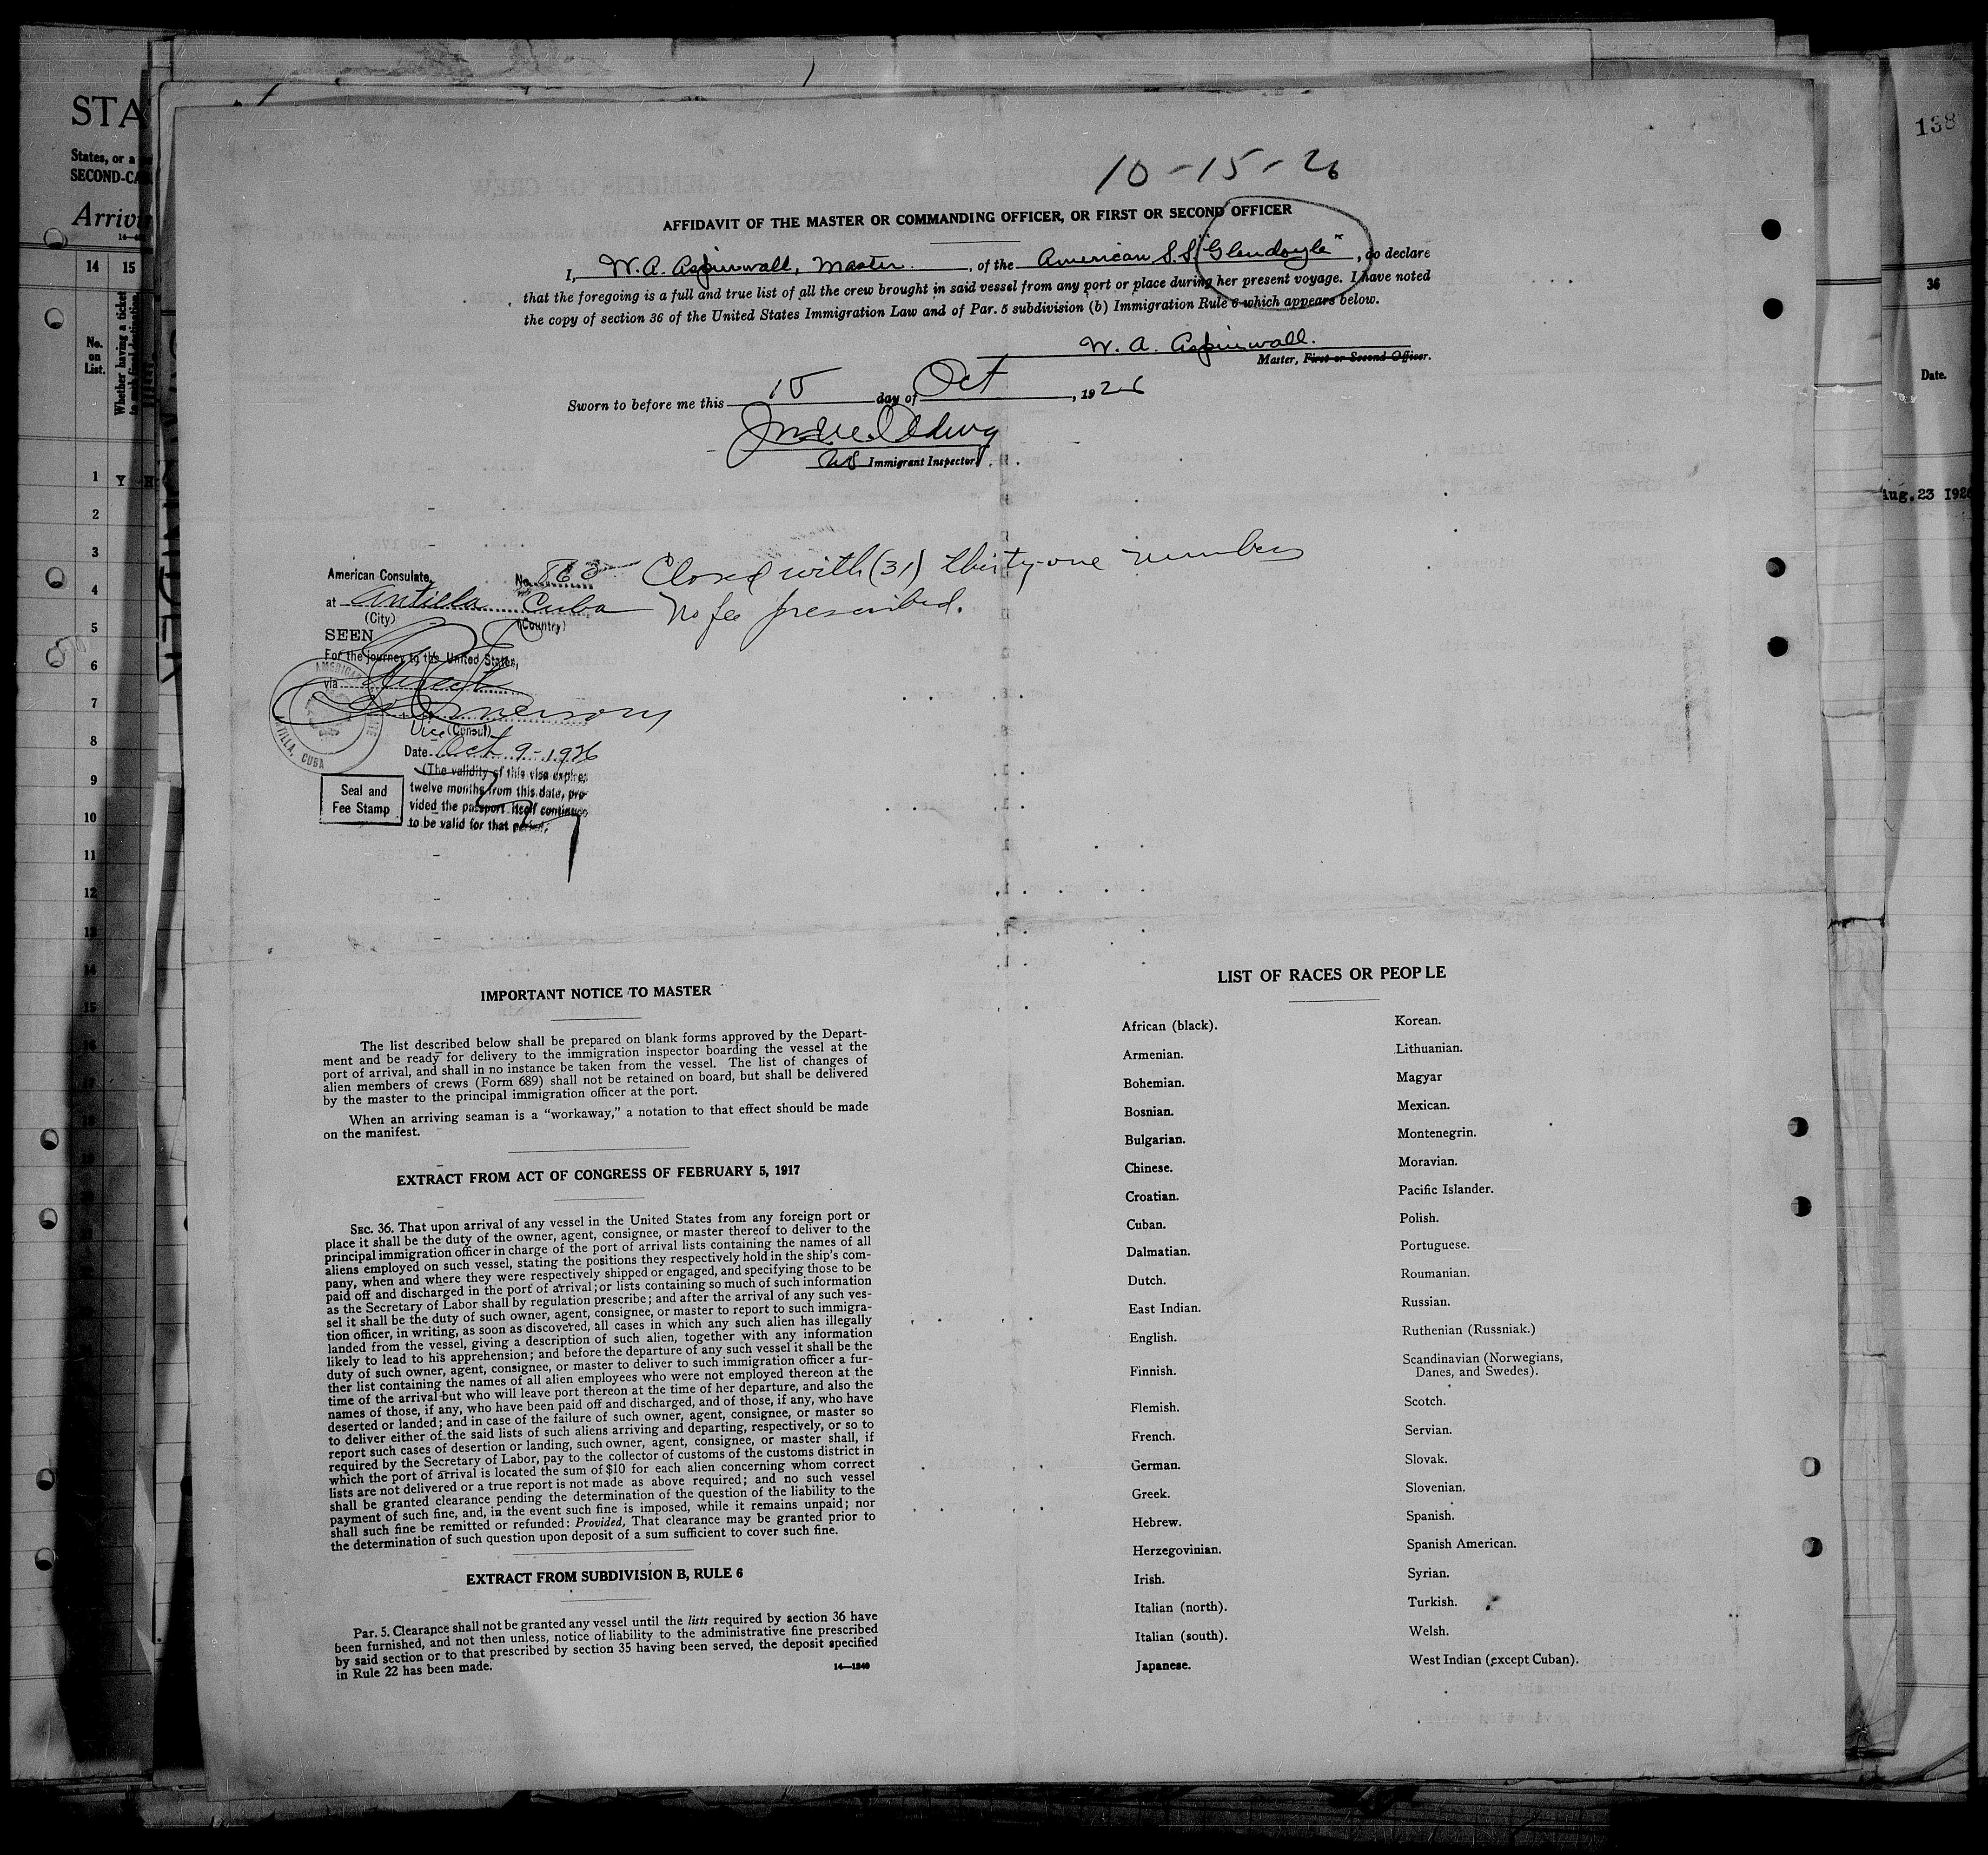 STA
States, or a
SECOND-CA
Arrivi
14
15
No.
on
List.
Whether having a ticket
to such final destination.
1
Y
2
3
4
5
6
7
8
9
10
11
12
13
14
15
16
17
18
19
138
36
Date.
Aug. 23 1926
10-15-26
AFFIDAVIT OF THE MASTER OR COMMANDING OFFICER, OR FIRST OR SECOND OFFICER
I, W. A. Aspinwall, Master, of the American S.S. "Glendoyle", do declare
that the foregoing is a full and true list of all the crew brought in said vessel from any port or place during her present voyage. I have noted
the copy of section 36 of the United States Immigration Law and of Par. 5 subdivision (b) Immigration Rule 6 which appears below.
W. A. Aspinwall.
Master, First or Second Officer.
Sworn to before me this 15 day of Oct, 1926
US Immigrant Inspector.
American Consulate, No. Closed with (31) thirty-one numbers
at Antilla Cuba No fee prescribed.
(City) (Country)
SEEN
For the journey to the United States,
via direct
Vice (Consul)
Date Oct 9-1926
(The validity of this visa expires
twelve months from this date, pro-
vided the passport itself continues
to be valid for that period.
Seal and
Fee Stamp
ANTILLA, CUBA
IMPORTANT NOTICE TO MASTER
The list described below shall be prepared on blank forms approved by the Depart-
ment and be ready for delivery to the immigration inspector boarding the vessel at the
port of arrival, and shall in no instance be taken from the vessel. The list of changes of
alien members of crews (Form 689) shall not be retained on board, but shall be delivered
by the master to the principal immigration officer at the port.
When an arriving seaman is a "workaway," a notation to that effect should be made
on the manifest.
EXTRACT FROM ACT OF CONGRESS OF FEBRUARY 5, 1917
SEC. 36. That upon arrival of any vessel in the United States from any foreign port or
place it shall be the duty of the owner, agent, consignee, or master thereof to deliver to the
principal immigration officer in charge of the port of arrival lists containing the names of all
aliens employed on such vessel, stating the positions they respectively hold in the ship's com-
pany, when and where they were respectively shipped or engaged, and specifying those to be
paid off and discharged in the port of arrival; or lists containing so much of such information
as the Secretary of Labor shall by regulation prescribe; and after the arrival of any such ves-
sel it shall be the duty of such owner, agent, consignee, or master to report to such immigra-
tion officer, in writing, as soon as discovered, all cases in which any such alien has illegally
landed from the vessel, giving a description of such alien, together with any information
likely to lead to his apprehension; and before the departure of any such vessel it shall be the
duty of such owner, agent, consignee, or master to deliver to such immigration officer a fur-
ther list containing the names of all alien employees who were not employed thereon at the
time of the arrival but who will leave port thereon at the time of her departure, and also the
names of those, if any, who have been paid off and discharged, and of those, if any, who have
deserted or landed; and in case of the failure of such owner, agent, consignee, or master so
to deliver either of the said lists of such aliens arriving and departing, respectively, or so to
report such cases of desertion or landing, such owner, agent, consignee, or master shall, if
required by the Secretary of Labor, pay to the collector of customs of the customs district in
which the port of arrival is located the sum of $10 for each alien concerning whom correct
lists are not delivered or a true report is not made as above required; and no such vessel
shall be granted clearance pending the determination of the question of the liability to the
payment of such fine, and, in the event such fine is imposed, while it remains unpaid; nor
shall such fine be remitted or refunded: Provided, That clearance may be granted prior to
the determination of such question upon deposit of a sum sufficient to cover such fine.
EXTRACT FROM SUBDIVISION B, RULE 6
Par. 5. Clearance shall not be granted any vessel until the lists required by section 36 have
been furnished, and not then unless, notice of liability to the administrative fine prescribed
by said section or to that prescribed by section 35 having been served, the deposit specified
in Rule 22 has been made.
14—1240
LIST OF RACES OR PEOPLE
African (black).
Armenian.
Bohemian.
Bosnian.
Bulgarian.
Chinese.
Croatian.
Cuban.
Dalmatian.
Dutch.
East Indian.
English.
Finnish.
Flemish.
French.
German.
Greek.
Hebrew.
Herzegovinian.
Irish.
Italian (north).
Italian (south).
Japanese.
Korean.
Lithuanian.
Magyar
Mexican.
Montenegrin.
Moravian.
Pacific Islander.
Polish.
Portuguese.
Roumanian.
Russian.
Ruthenian (Russniak.)
Scandinavian (Norwegians,
Danes, and Swedes).
Scotch.
Servian.
Slovak.
Slovenian.
Spanish.
Spanish American.
Syrian.
Turkish.
Welsh.
West Indian (except Cuban).